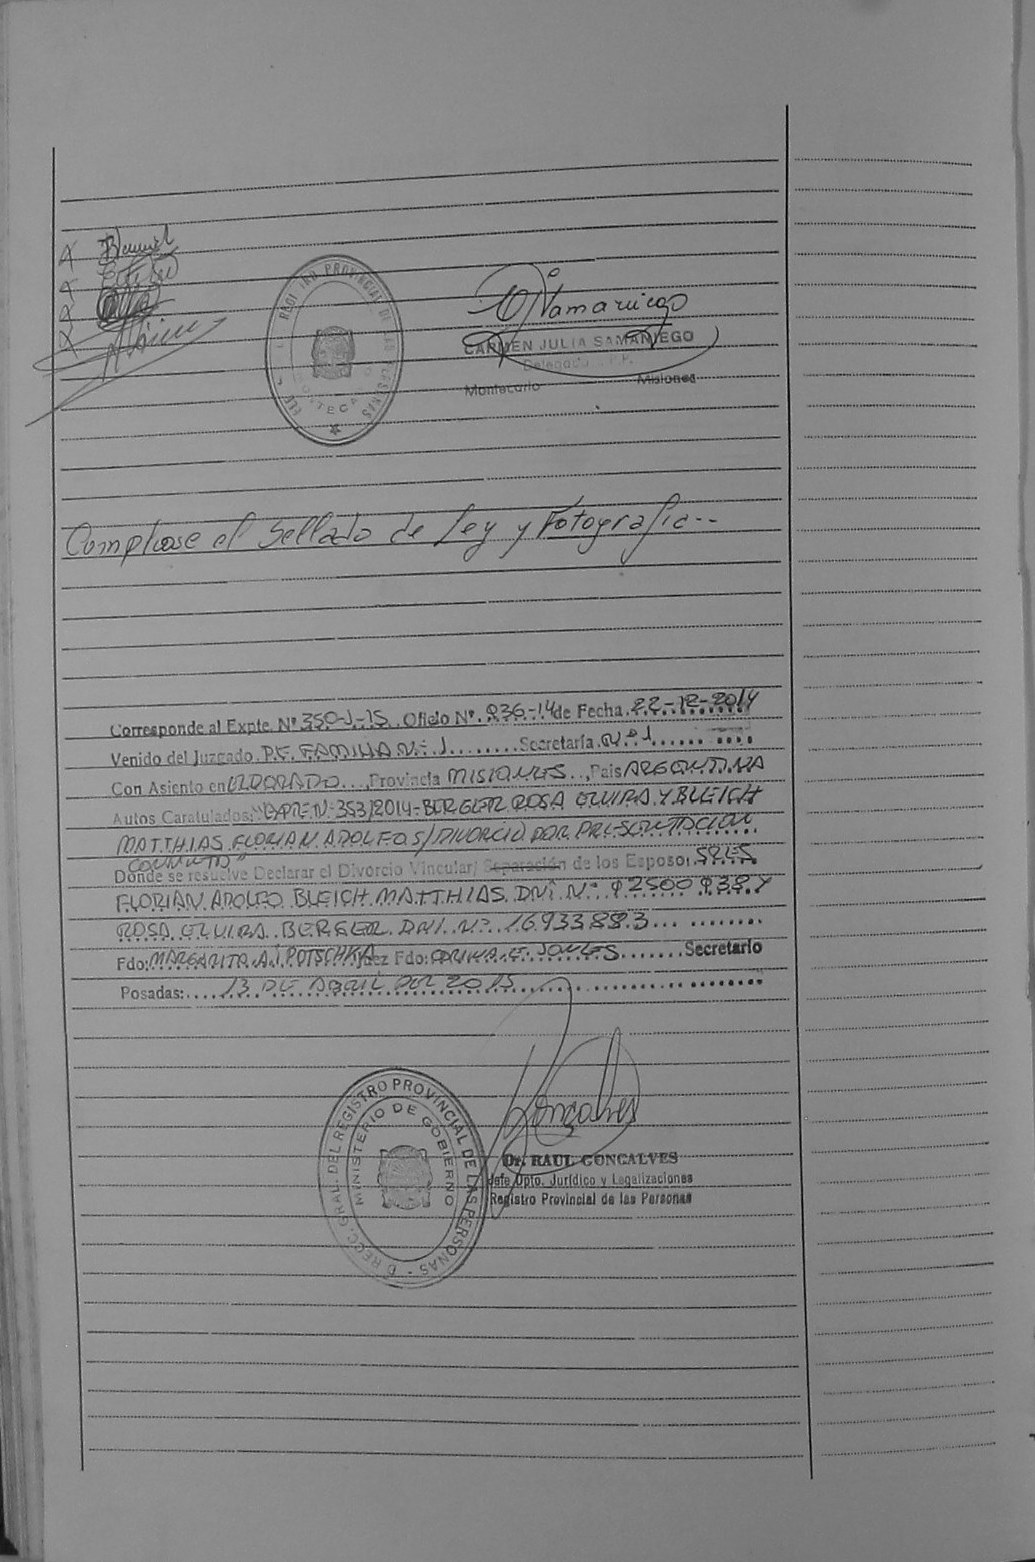 X
X
X
X
REGISTRO PROVINCIAL DE LAS PERSONAS
CARMEN JULIA SAMANIEGO
Delegada
Montecarlo Misiones
Complease el Sellado de Ley y Fotografia--
Corresponde al Expte. Nº 350-J-15. Oficio Nº. 936-14 de Fecha 22-12-2014
Venido del Juzgado DE FAMILIA N: 1 Secretaría Nº 1
Con Asiento en ELDORADO, Provincia MISIONES, País ARGENTINA
Autos Caratulados: "EXPTE N: 353/2014-BERGLER ROSA ELVIRA Y BLEICH
MATTHIAS FLORIAN ADOLFO S/DIVORCIO POR PRESENTACION
CONJUNTA"
Donde se resuelve Declarar el Divorcio Vincular/ Separación de los Esposos SRES
FLORIAN ADOLFO BLEICH MATTHIAS DNI N:
ROSA ELVIRA BERGLER DNI N: 16.933.883
Fdo: MARGARITA A. POTSCHKA Juez Fdo: Secretario
Posadas: 13 DE ABRIL DEL 2015
DIRECC. GRAL. DEL REGISTRO PROVINCIAL DE LAS PERSONAS
MINISTERIO DE GOBIERNO
Gonçalves
Dr. RAUL GONCALVES
Jefe Dpto. Jurídico y Legalizaciones
Registro Provincial de las Personas